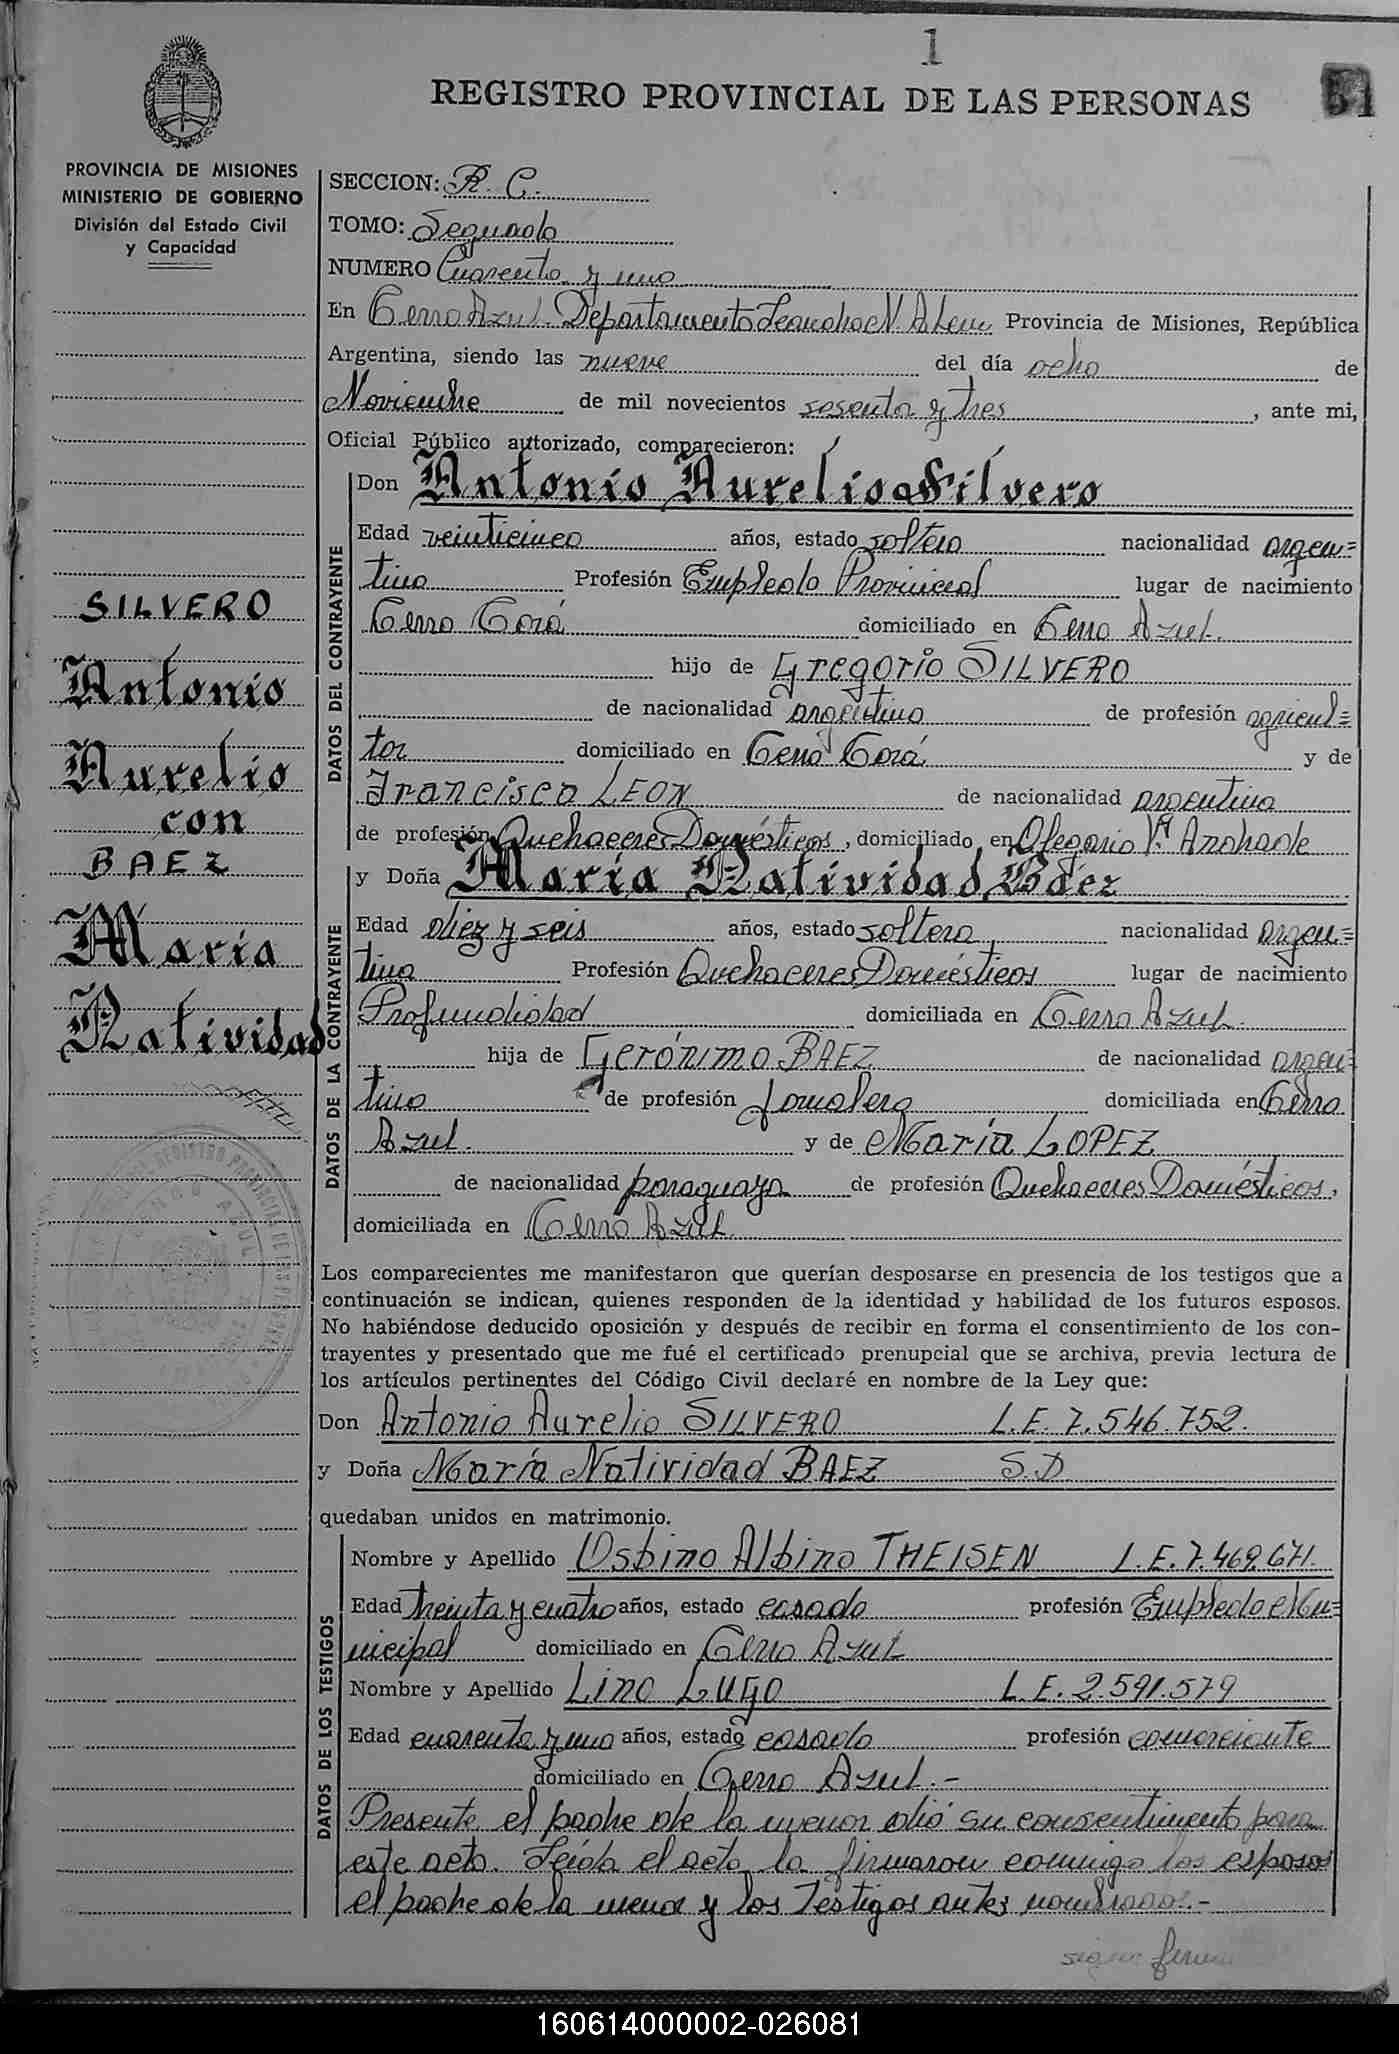 1
REGISTRO PROVINCIAL DE LAS PERSONAS
51
PROVINCIA DE MISIONES
MINISTERIO DE GOBIERNO
División del Estado Civil
y Capacidad
SILVERO
Antonio
Aurelio
con
BAEZ
María
Natividad
SECCION: R. C.
TOMO: Segundo
NUMERO Cuarenta y uno
En Cerro Azul Departamento Leandro N. Alem Provincia de Misiones, República
Argentina, siendo las nueve del día ocho de
Noviembre de mil novecientos sesenta y tres, ante mi,
Oficial Público autorizado, comparecieron:
DATOS DEL CONTRAYENTE
Don Antonio Aurelio Silvero
Edad veinticinco años, estado soltero nacionalidad argen=
tino Profesión Empleado Provincial lugar de nacimiento
Cerro Corá domiciliado en Cerro Azul.
hijo de Gregorio SILVERO
de nacionalidad argentino de profesión agricul=
tor domiciliado en Cerro Corá y de
Francisca LEON de nacionalidad argentina
de profesión Quehaceres Domésticos, domiciliado en Olegario V. Andrade
DATOS DE LA CONTRAYENTE
y Doña María Natividad Báez
Edad diez y seis años, estado soltera, nacionalidad argen=
tina Profesión Quehaceres Domésticos lugar de nacimiento
Profundidad domiciliada en Cerro Azul.
hija de Gerónimo BAEZ de nacionalidad argen=
tino de profesión Jornalero domiciliada en Cerro
Azul. y de María LOPEZ
de nacionalidad paraguaya de profesión Quehaceres Domésticos,
domiciliada en Cerro Azul.
Los comparecientes me manifestaron que querían desposarse en presencia de los testigos que a
continuación se indican, quienes responden de la identidad y habilidad de los futuros esposos.
No habiéndose deducido oposición y después de recibir en forma el consentimiento de los con-
trayentes y presentado que me fué el certificado prenupcial que se archiva, previa lectura de
los artículos pertinentes del Código Civil declaré en nombre de la Ley que:
Don Antonio Aurelio SILVERO L.E. 7.546.752.
y Doña María Natividad BAEZ S.D
quedaban unidos en matrimonio.
DATOS DE LOS TESTIGOS
Nombre y Apellido Osbino Albino THEISEN L.E. 7.469.671.
Edad treinta y cuatro años, estado casado profesión Empleado Mu=
nicipal domiciliado en Cerro Azul
Nombre y Apellido Lino LUGO L.E. 2.591.579
Edad cuarenta y uno años, estado casado profesión comerciante
domiciliado en Cerro Azul.-
Presente el padre de la menor dió su consentimiento para
este acto. Leída el acta la firmaron conmigo los esposos
el padre de la menor y los Testigos antes nombrados.-
160614000002-026081